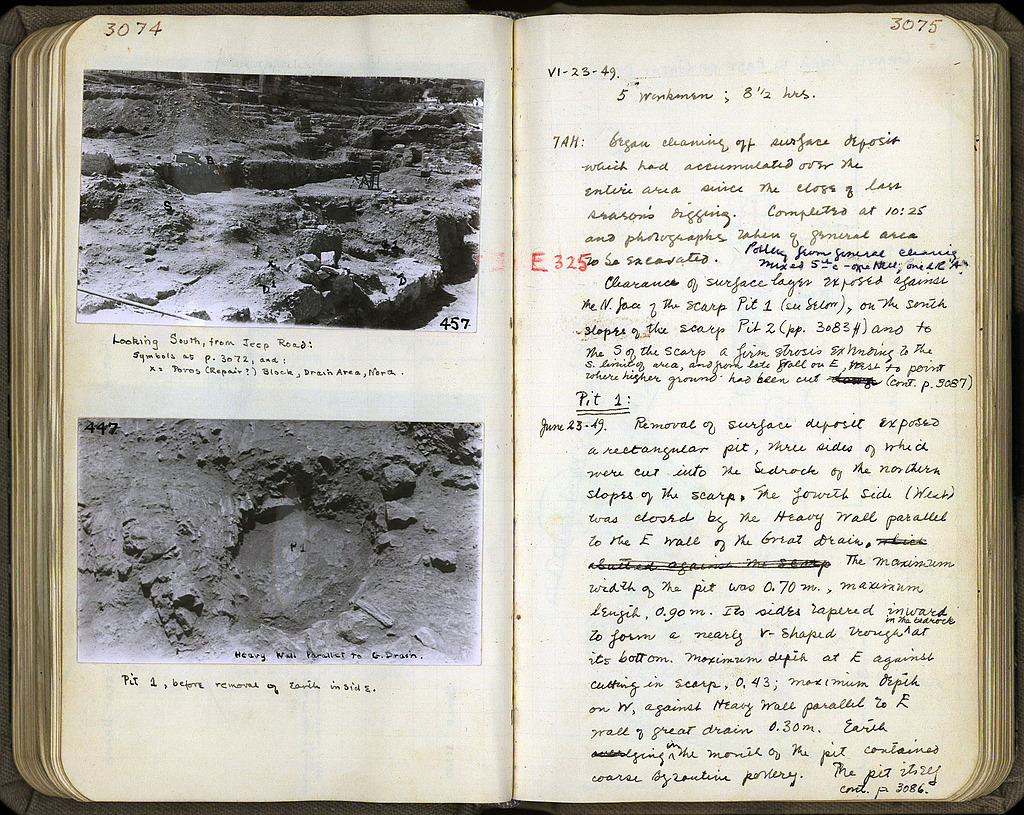 3074
457
Looking South, from Jeep Road:
Symbols as p. 3072, and:
x = Poros (Repair?) Block, Drain Area, North.
447
P1
Heavy Wall Parallel to G. Drain.
Pit 1, before removal of Earth inside.
3075
VI-23-49.
5 Workmen; 8 1/2 hrs.
7AH: Began cleaning off surface deposit
which had accumulated over the
entire area since the close of last
season's digging. Completed at 10:25
and photographs taken of general area
to be excavated.
Pottery from general cleaning
mixed 5th c - one Nell; one LR "A"
E 325
Clearance of surface layer exposed against
the N. face of the scarp Pit 1 (see below), on the south
slopes of the scarp Pit 2 (pp. 3083ff) and to
the S of the scarp a firm strosis extending to the
S. limit of area, and from late wall on E, West to point
where higher ground had been cut (cont. p. 3087)
Pit 1:
June 23-49. Removal of surface deposit exposed
a rectangular pit, three sides of which
were cut into the bedrock of the northern
slopes of the scarp. The fourth side (West)
was closed by the Heavy Wall parallel
to the E wall of the Great Drain, which
abutted against the scarp The maximum
width of the pit was 0.70 m., maximum
length, 0.90 m. Its sides tapered inward
to form a nearly V-shaped trough in the bedrock at
its bottom. Maximum depth at E against
cutting in scarp, 0.43; maximum depth
on W, against Heavy Wall parallel to E
wall of great drain 0.30 m. Earth
lying in the mouth of the pit contained
coarse Byzantine pottery. The pit itself
cont. p. 3086.